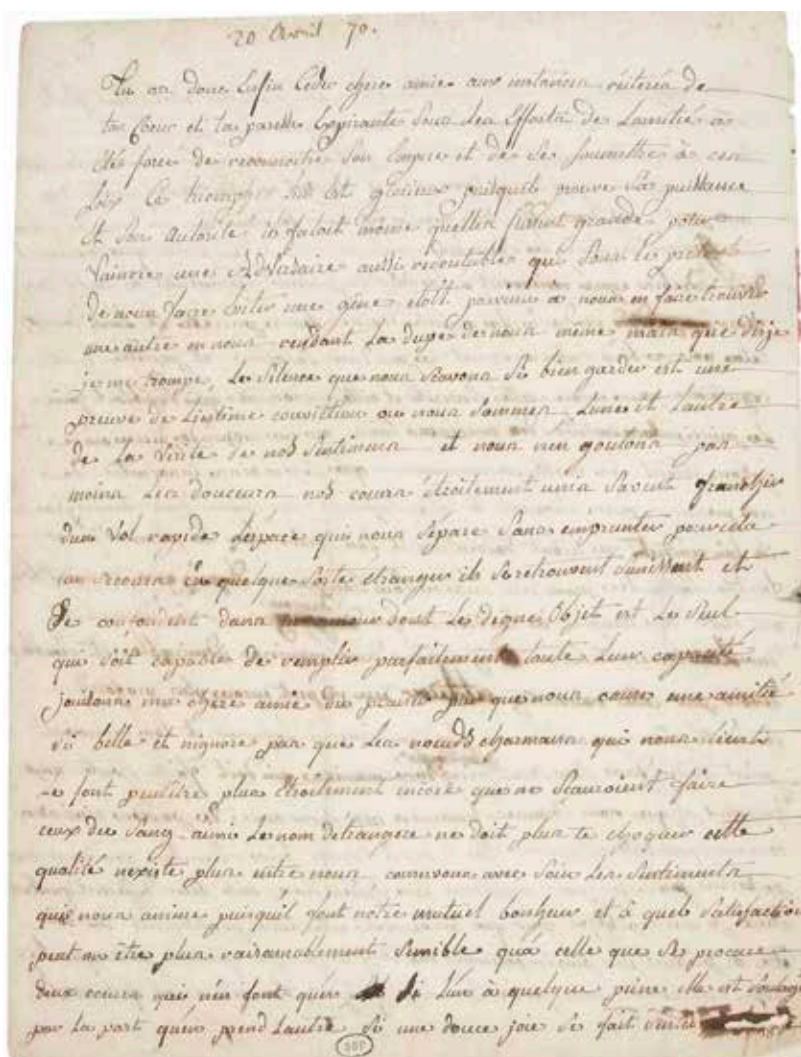 20 Avril 70.
Tu as donc Enfin Ceder chere amie aux instances réiterés de
ton Coeur et ta paresse Expirante Sous Les Efforts de Lamitié a
étés forcé de reconnoitre Son Empire et de Se Soumettre à ces
Loix Ce triomphe est glorieux puisquil prouve Sa puissance
Et Son Autorité il faloit même quelles fussent grande pour
Vaincre une Adversaire aussi redoutable qui Sous le pretexte
de nous faire Eviter une gêne etoit parvenu à nous en faire trouver
une autre en nous rendant La dupe de nous même mais que dirje
je me trompe, Le Silence que nous Scavons Si bien garder est une
preuve de Lintime conviction ou nous Sommes Lune et Lautre
de La Verité de nos Sentimens et nous nen goutons pas
moins Les douceurs nos coeurs étroitement unis Savent franchir
dun Vol rapide Lespace qui nous Sépare Sans emprunter pour cela
un Secours en quelque Sorte etranger ils Se retrouvent Sunissent et
Se confondent dans dont Le digne Objet est Le Seul
qui Soit capable de remplir parfaitement toute Leur capacité
jouissons ma chere amie du plaisir que nous cause une amitié
Si belle et nignore pas que Les noeuds charmans qui nous Lient
Le font peutêtre plus Etroitement encore que ne Scauroient faire
ceux du Sang ainsi Le nom detrangere ne doit plus te choquer cette
qualité nexiste plus entre nous conservons avec Soin Les Sentiments
qui nous anime puisquil font notre mutuel bonheur et à quelle Satisfaction
peut on être plus raisonnablement Sensible quà celle que Se procure
deux coeurs qui nen font quun Si Lun à quelque peine elle est Soulagé
par La part quen prend Lautre Si une douce joie Se fait Sentir